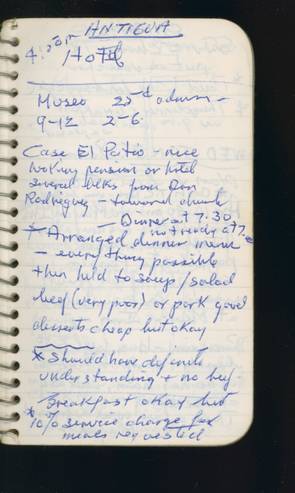 ANTIGUA
4:30P Hotel
Museo 25¢ admn -
9-12 2-6
Casa El Patio - nice
looking pension or hotel
several blks from Don
Rodriguez - toward church
- Dinner at 7:30
not ready at 7
* Arranged dinner menu
- everything possible
then held to soup/salad
beef (very poor) or pork good
desserts cheap but okay
* Should have definite
understanding + no beef.
Breakfast okay but
* 10% service charge for
meals requested